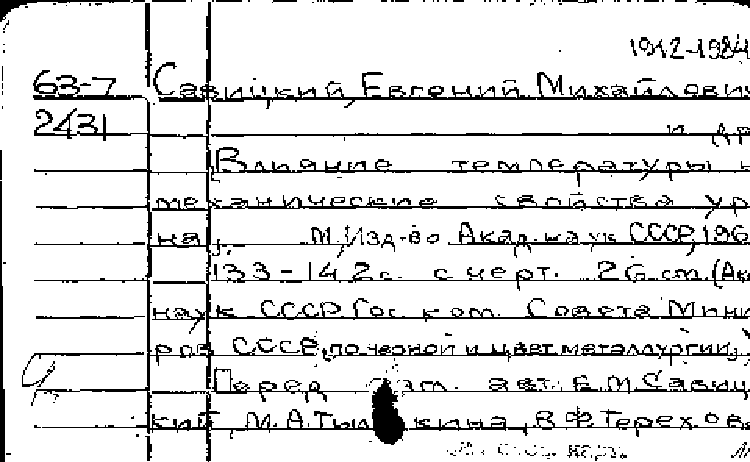 1912-1984
63-7 Савицкий, Евгений Михайлович
2431 и др
Влияние температуры
механические свойства ур
на, М, Изд-во Акад. наук СССР, 196
133-142с. с черт. 26 см. (Ак
наук СССР. Гос. ком. Совета Мини
ров СССР, по черной и цвет. металлургии,
Перед авт. Е.М. Савиц
кий, М.А. Тыл кина, В.Ф. Терехова